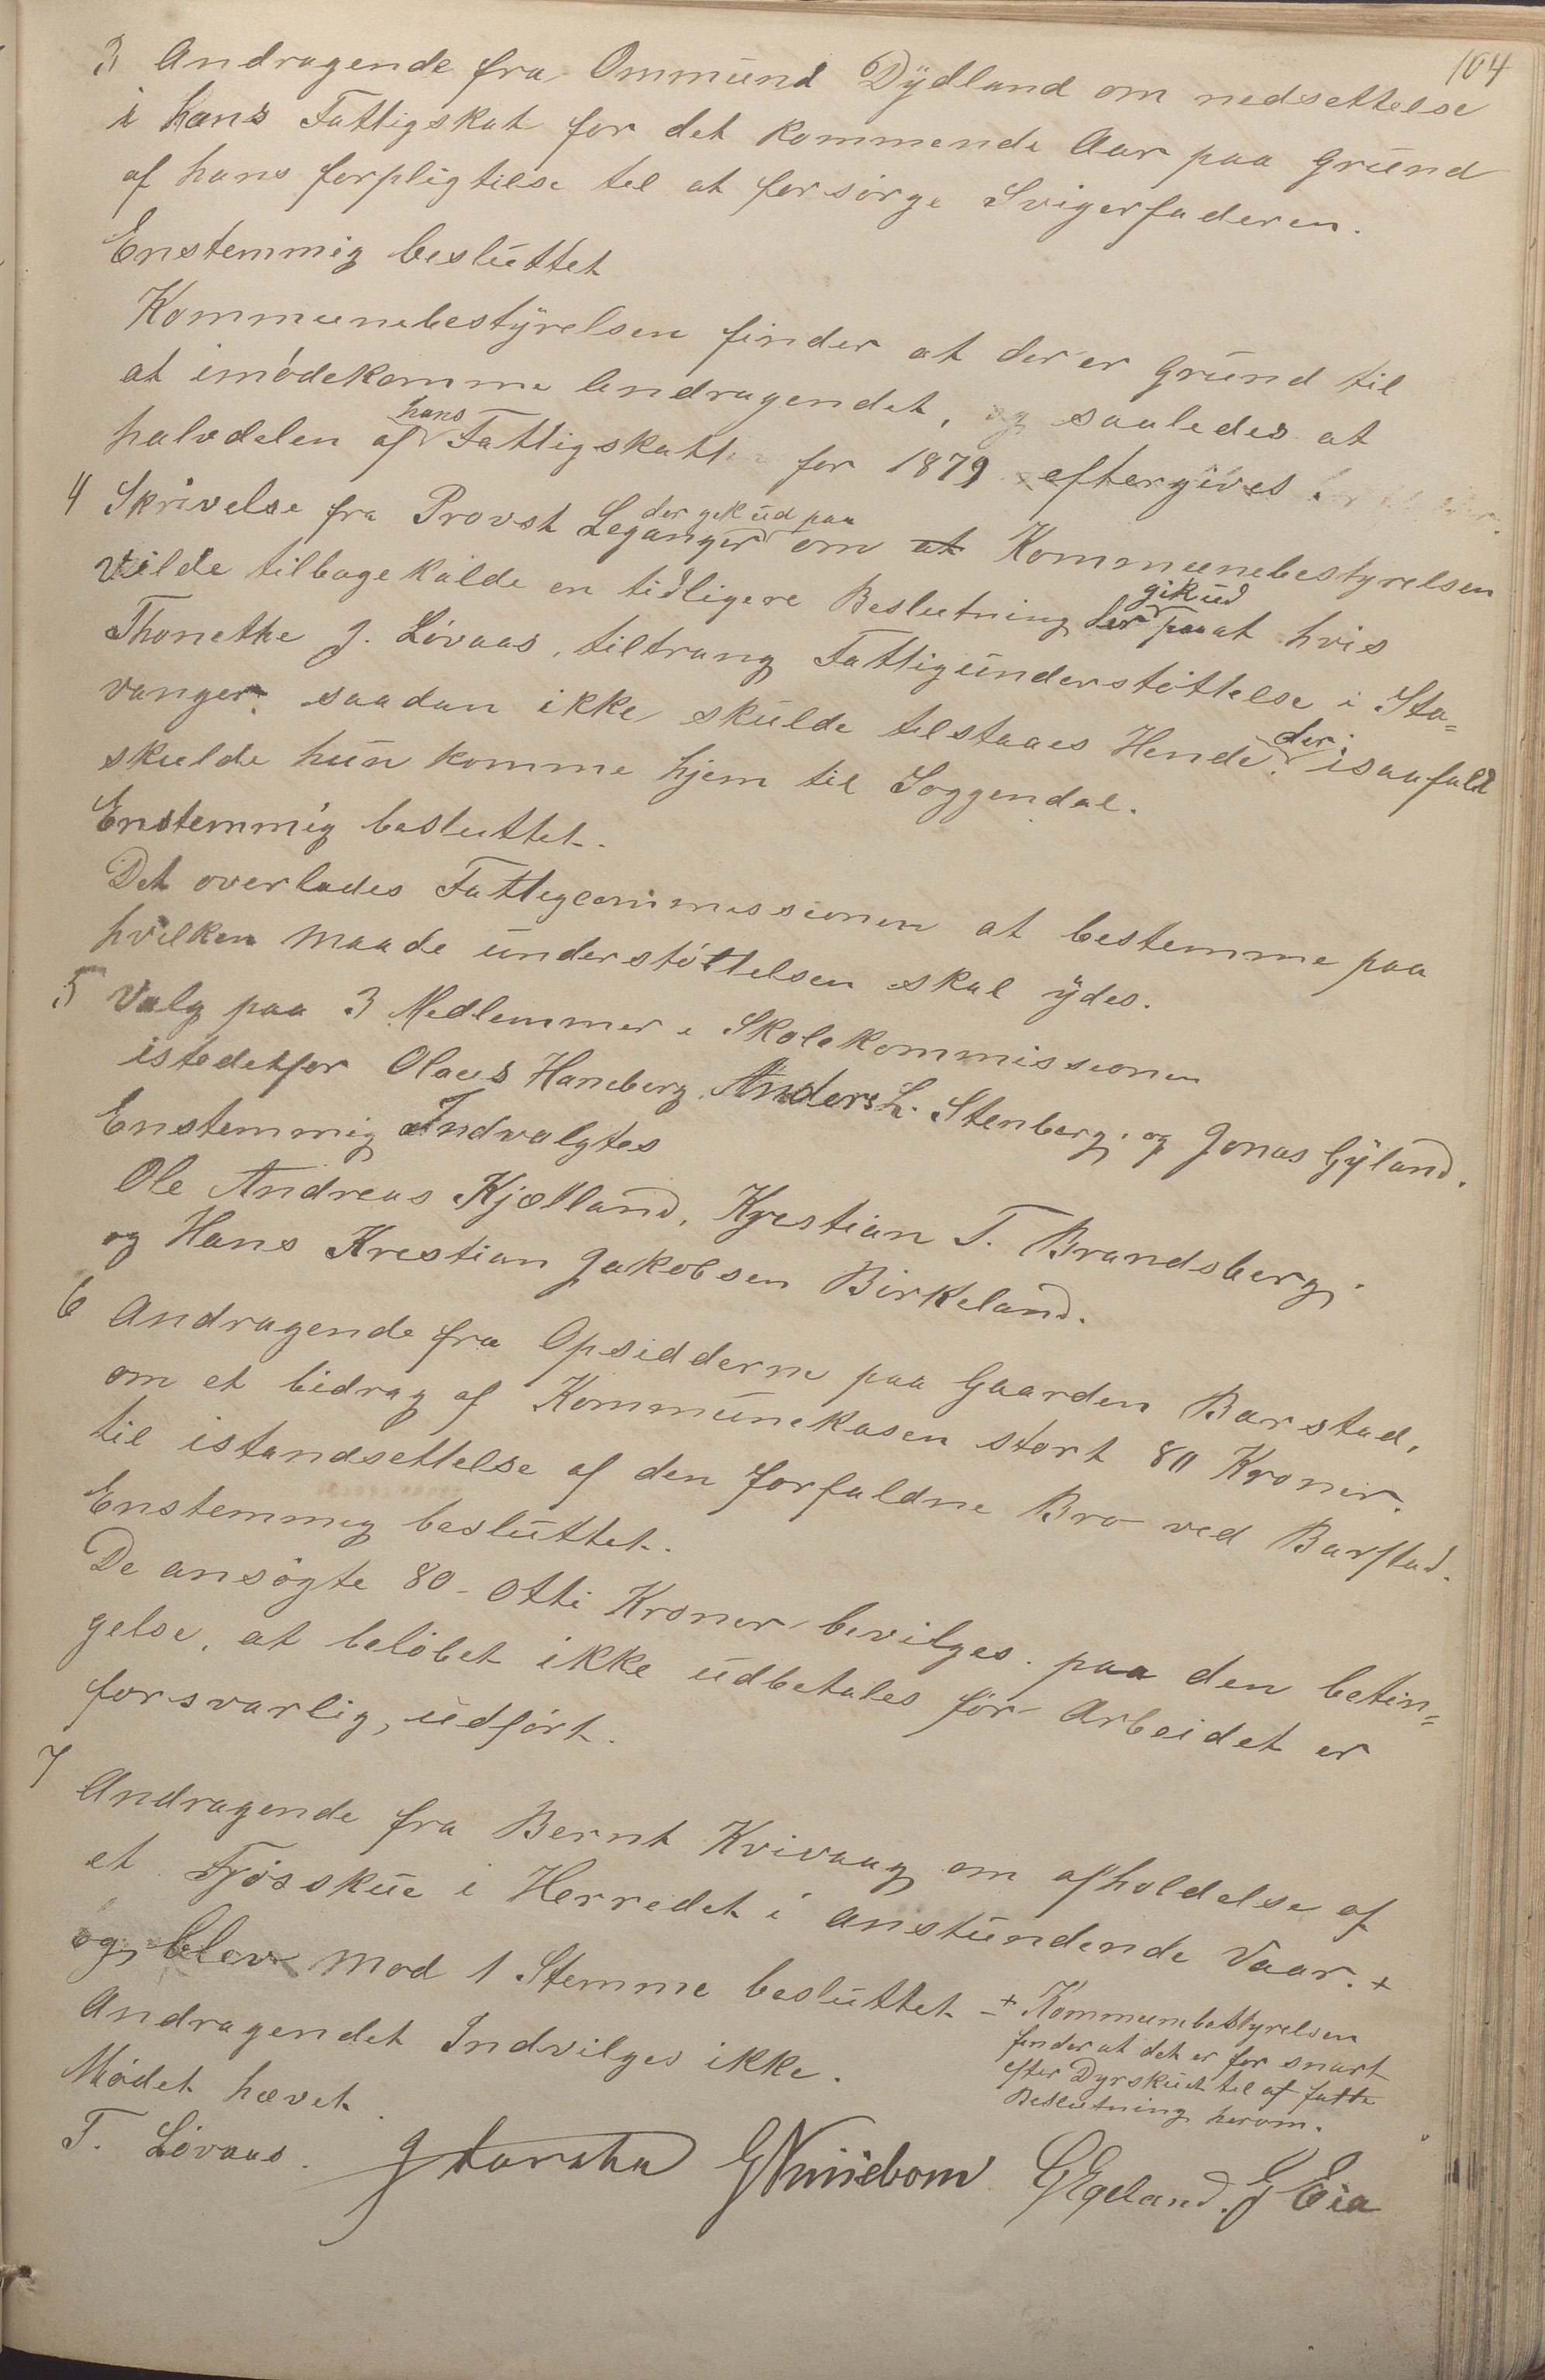 104
3 Andragende fra Ommund Dÿdland om nedsettelse
i hans Fattigskat for det kommende Aar paa Grund
af hans forpligtelse til at forsørge Svigerfaderen.
Enstemmig besluttet
Kommunebestÿrelsen finder at der er Grund til
at imødekomme Andragendet, og saaledes at
hans
halvdelen af Fattigskatt for 1879 eftergives
der gik ud paa
4 Skrivelse fra Provst Leganger om at Kommunebestyrelsen
vilde tilbagekalde en tidligere Beslutning der paa at hvis
gik ud
Thonethe J. Løvaas, tiltrang Fattigunderstøttelse i Sta=
vanger. saadan ikke skulde tilstaaes Hende. isaafald
der
skulde hun komme hjem til Soggendal.
Enstemmig besluttet.
Det overlades Fattigcommissionen at bestemme paa
hvilken Maade understøttelsen skal ÿdes.
5 Valg paa 3 Medlemmer i Skolekommissionen
istedetfor Olaus Haneberg, Anders L. Stenberg, og Jonas Gÿland.
Enstemmig Indvalgtes
Ole Andreas Kjelland, Krestian T. Brandsberg,
og Hans Krestian Jakobsen Birkeland.
6 Andragende fra Opsidderne paa Gaarden Barstad,
om et bidrag af Kommunekasen stort 80 Kroner.
til istandsettelse af den forfaldne Bro ved Barstad.
Enstemmig besluttet.
De ansøgte 80 - otti Kroner bevilges. paa den betin=
gelse, at beløbet ikke udbetales før Arbeidet er
forsvarlig, udført.
7
Andragende fra Bernt Kvivaag om afholdelse af
et Fjøsskue i Herredet i anstundende Vaar. +
og blev mod 1 Stemme besluttet
+ Kommunbestyrelsen
finder at det er for snart
efter Dyrskuet til at fatte
Beslutning herom.
Andragendet Indvilges ikke.
Mødet hævet
T. Løvaas. G Egeland. G Eia